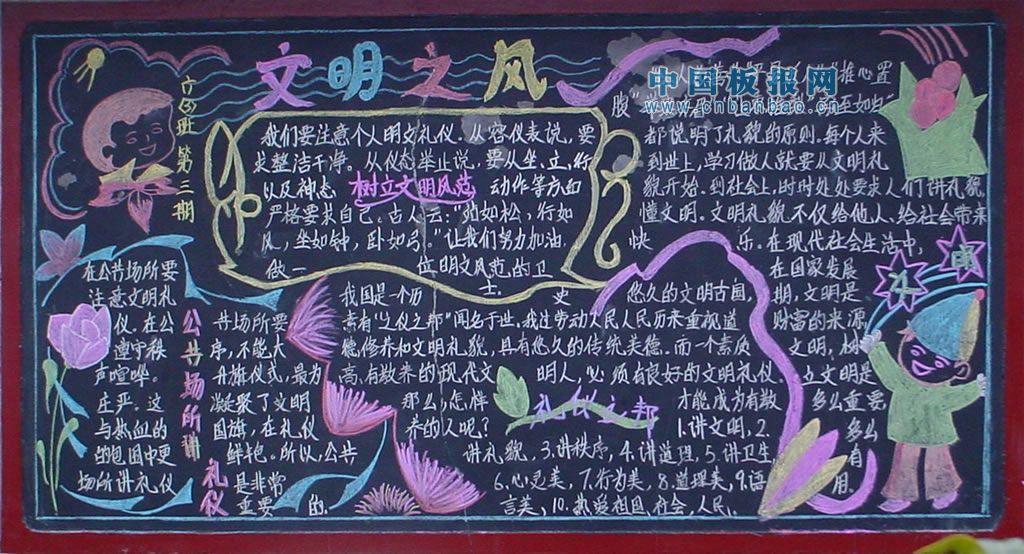 文明之风
六(3)班 第三期
中国板报网
www.cnbanbao.cn
我们要注意个人明文礼仪。从容仪表说,要
求整洁干净。从仪态举止说,要从坐、立、行
以及神态 树立文明风范 动作等方面
严格要求自己。古人云:"站如松,行如
风,坐如钟,卧如弓。"让我们努力加油
做一 位明文风范的卫
士。
雄心置
腹"
至如归"
都说明了礼貌的原则。每个人来
到世上,学习做人就要从文明礼
貌开始。到社会上,时时处处要求人们讲礼貌
懂文明。文明礼貌不仅给他人、给社会带来
快 乐。在现代社会生活中,
在国家发展
期,文明是
财富的来源
文明,树
立文明是
多么重要
多么
有
用。
在公共场所要
注意文明礼
仪。在公
遵守秩
声喧哗。
庄严。这
与热血的
的包围中更
场所讲礼仪
公共场所讲
礼仪
共场所要
序,不能大
升旗仪式,最为
凝聚了文明
国旗,在礼仪
鲜艳。所以,公共
是非常
重要的。
我国是一个历 史 悠久的文明古国,
素有"文仪之邦"闻名于世,我过劳动人民人民历来重视道
德修养和文明礼貌,具有悠久的传统美德。而一个素质
高、有教养的现代文 明人,必须有良好的文明礼仪。
那么,怎样 礼仪之邦 才能成为有教
养的人呢? 1.讲文明,2.
讲礼貌,3.讲秩序,4.讲道理,5.讲卫生
6.心灵美,7.行为美,8.道理美,9.语
言美,10.热爱祖国,社会,人民。